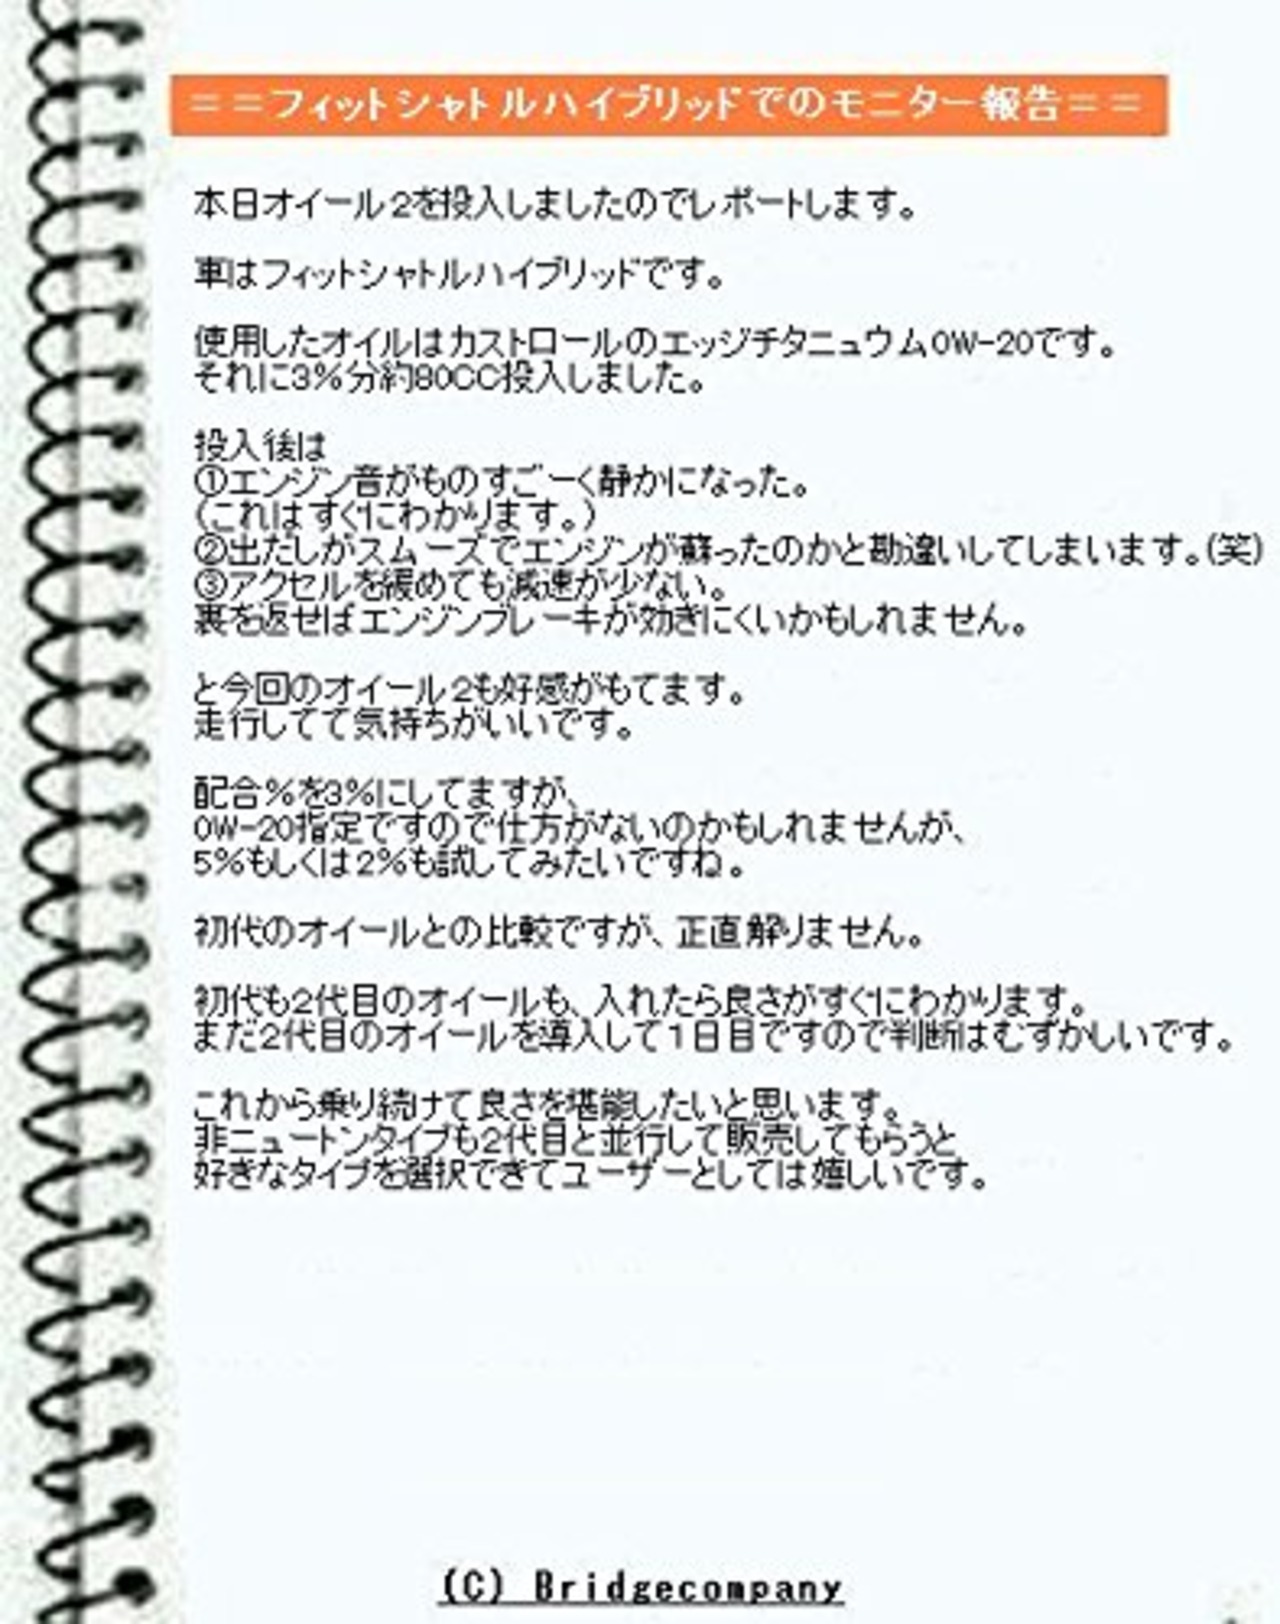 ＝＝フィットシャトルハイブリッドでのモニター報告＝＝
本日オイール2を投入しましたのでレポートします。
車はフィットシャトルハイブリッドです。
使用したオイルはカストロールのエッジチタニュウム0W-20です。
それに3%分約80CC投入しました。
投入後は
①エンジン音がものすごーく静かになった。
(これはすぐにわかります。)
②出だしがスムーズでエンジンが蘇ったのかと勘違いしてしまいます。(笑)
③アクセルを緩めても減速が少ない。
裏を返せばエンジンブレーキが効きにくいかもしれません。
と今回のオイール2も好感がもてます。
走行してて気持ちがいいです。
配合%を3%にしてますが、
0W-20指定ですので仕方がないのかもしれませんが、
5%もしくは2%も試してみたいですね。
初代のオイールとの比較ですが、正直解りません。
初代も2代目のオイールも、入れたら良さがすぐにわかります。
まだ2代目のオイールを導入して1日目ですので判断はむずかしいです。
これから乗り続けて良さを堪能したいと思います。
非ニュートンタイプも2代目と並行して販売してもらうと
好きなタイプを選択できてユーザーとしては嬉しいです。
(C) Bridgecompany